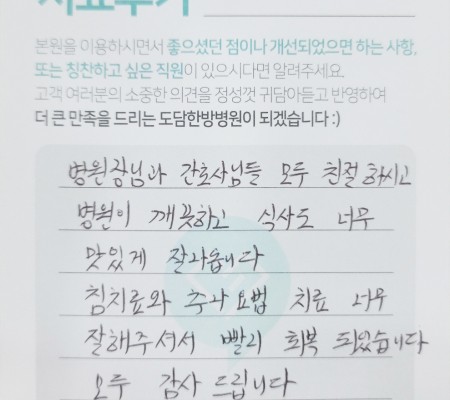 치료후기
본원을 이용하시면서 좋으셨던 점이나 개선되었으면 하는 사항,
또는 칭찬하고 싶은 직원이 있으시다면 알려주세요.
고객 여러분의 소중한 의견을 정성껏 귀담아듣고 반영하여
더 큰 만족을 드리는 도담한방병원이 되겠습니다 :)
병원장님과 간호사님들 모두 친절하시고
병원이 깨끗하고 식사도 너무
맛있게 잘나옵니다
침치료와 추나요법 치료 너무
잘해주셔서 빨리 회복 되었습니다
모두 감사 드립니다